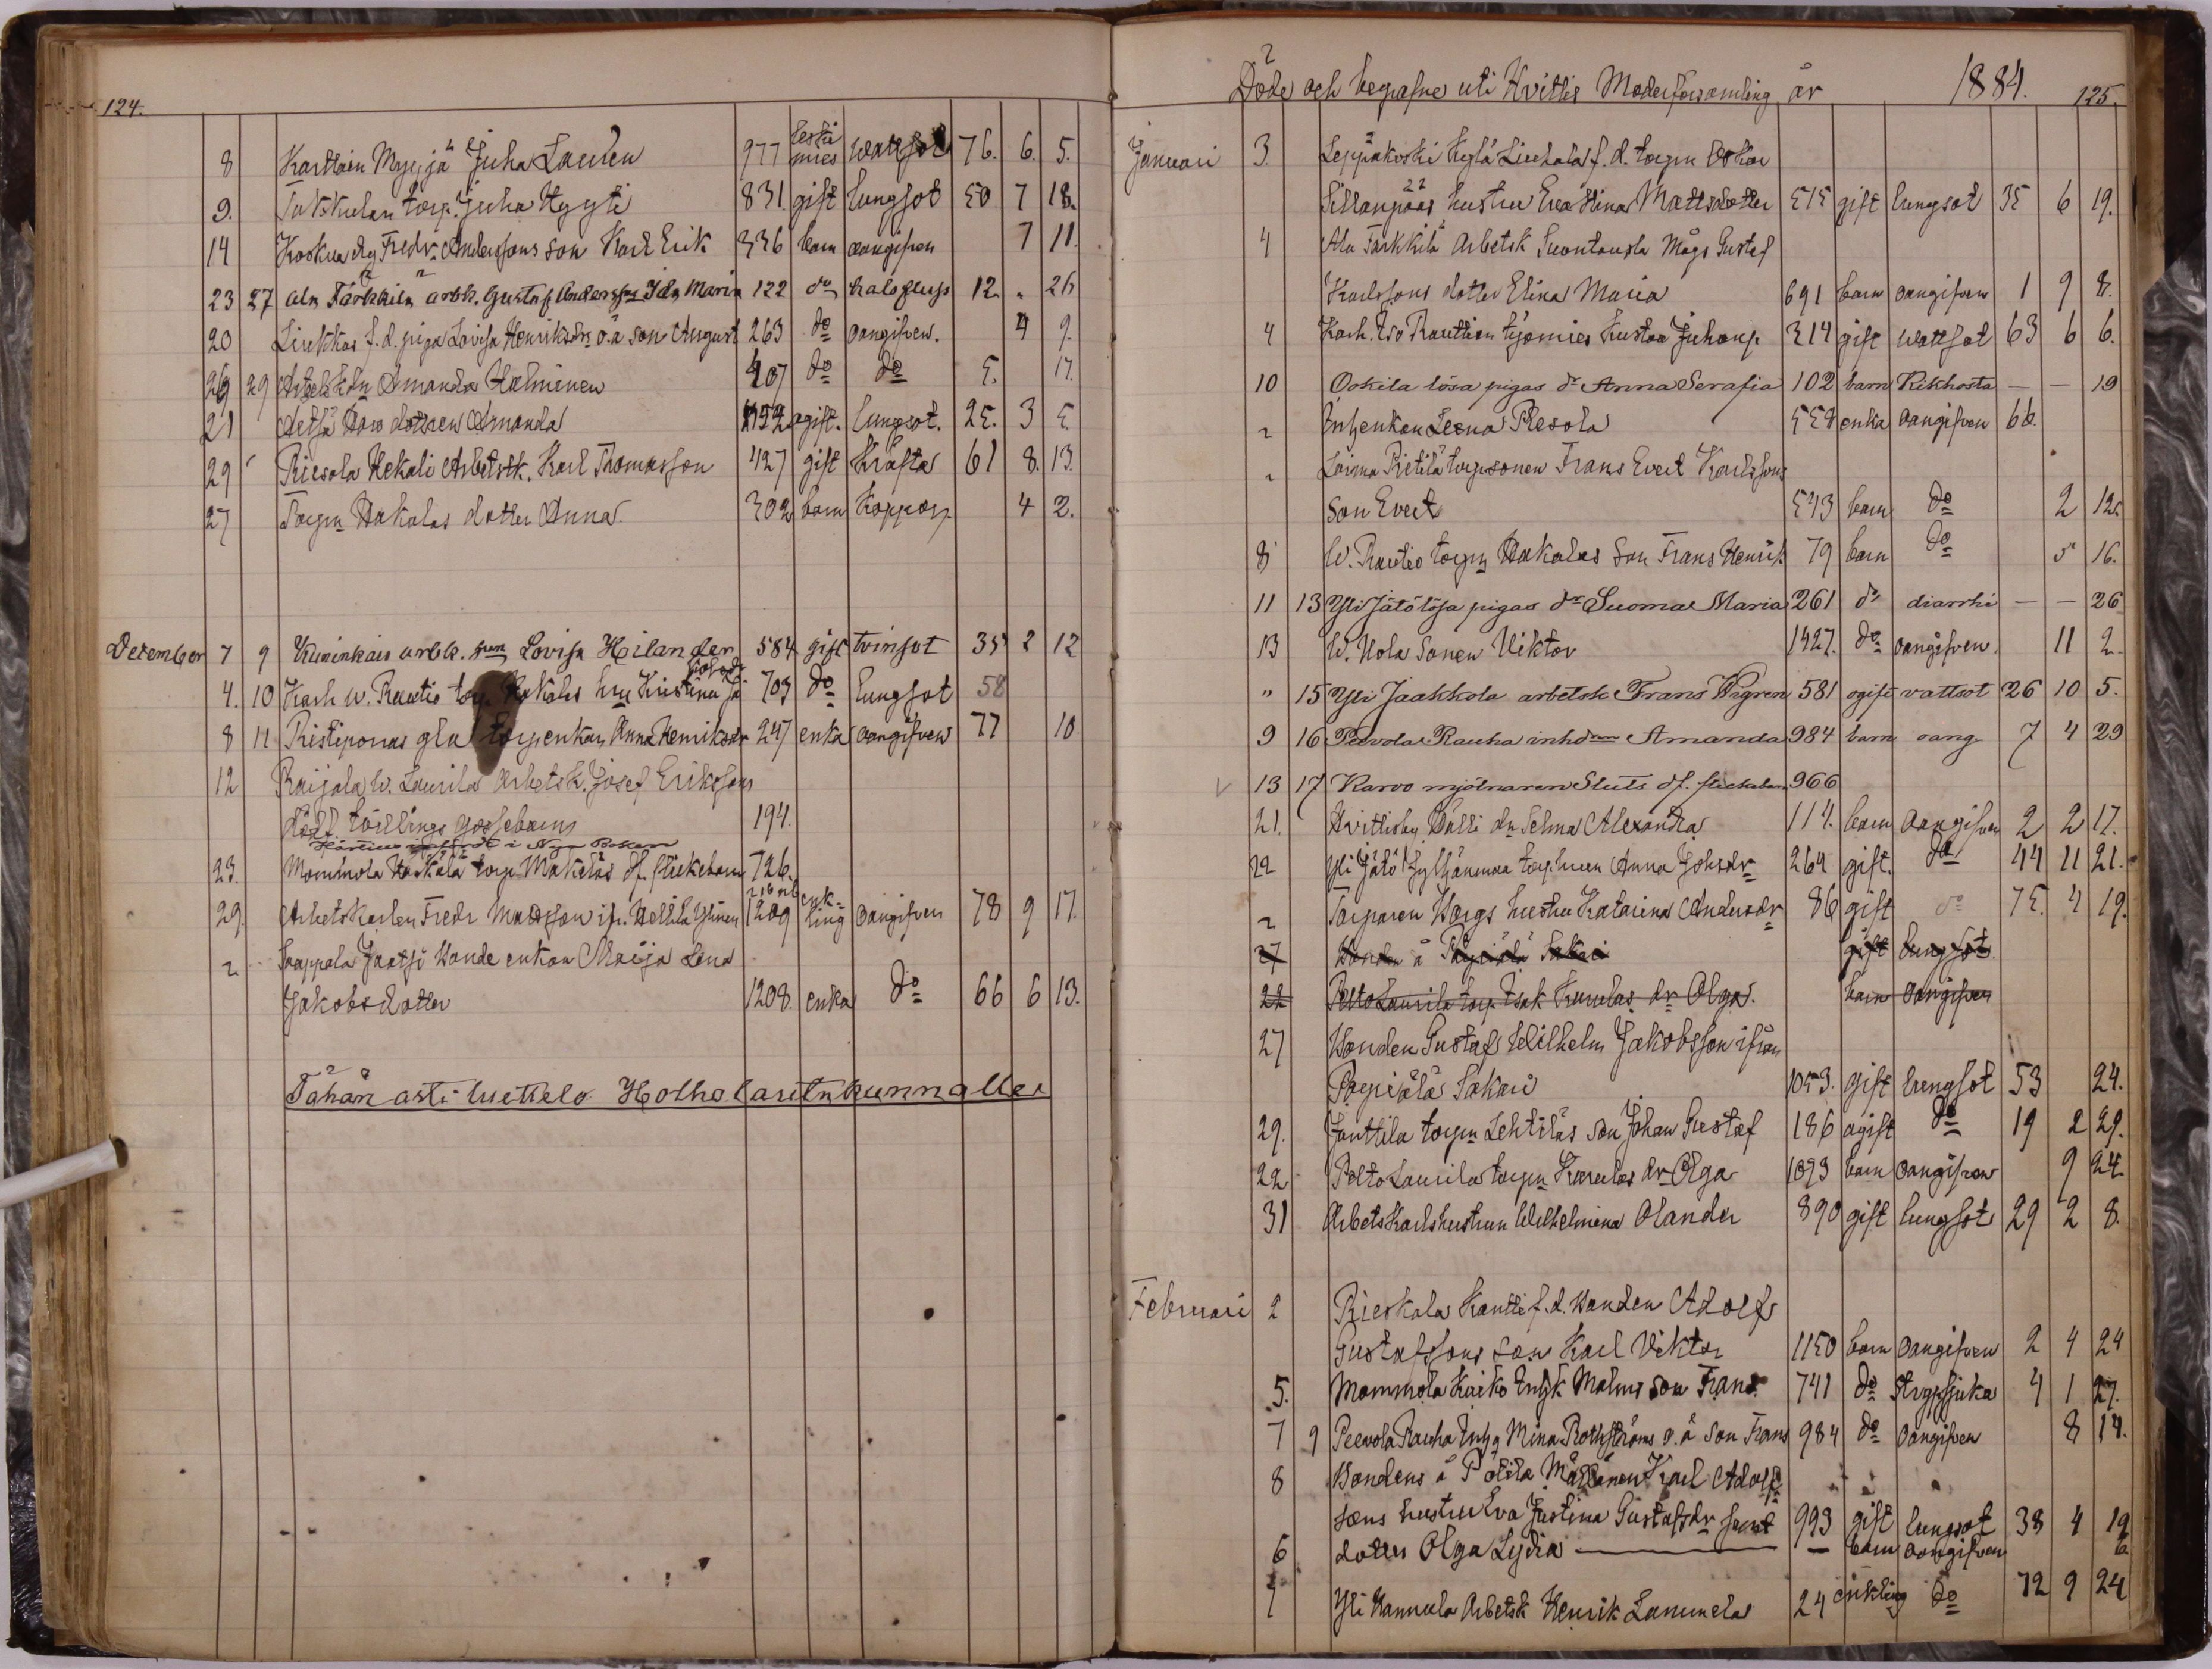 124.
8 Karttain Myyjä Juha Lauren 977 leski mies wattsot 76. 6. 5.
9. torp. Juha Hyyti 831. gift lungsot 50 7 18.
14 Fredr. Anderssons son Karl Erik 336 barn oangifven 7 11.
23 27 Ala Tarkkila arbk. Gustaf Anderssons Ida Maria 122 do 12 " 26
20 Liukkas f. d. piga Lovisa Henriksdrs o.ä son August 263 do oangifven. 4 9.
26 29 Amanda Halminen 407 do do 5. 17.
21 dottren Amanda ogift. lungsot. 25. 3 5.
29 Riesola Kekali Arbetsk. Karl Thomasson 427 gift Kräfta 61 8. 13.
27 Torpn Hakalas dotter Anna. 302 barn Koppor 4 2.
December 7 9 Kuninkais arbk. hun Lovisa Hilander 584 gift tvinsot 35 2 12
4. 10 Kark w. Rautio torp. Hakalas hru Kristina 703 do lungsot 58
8 11 Ristiponas torpenkan Anna Henriksdr 247 enka oangifven 77 10
12 Raijala w. Laurila Arbetsk. Josef Erikssons
dödf. tvillings gossebarn 194.
i Nya Boken
23. Mommola torp Mäkeläs df. flickebarn 726.
29. Arbetskarlen Fredr Mattsson ifr. Hellilä Ylinen 1209 enk- ling oangifven 78 9 17.
" Jaatsi Bonde enkan Maija Lena
Jakobsdotter 1208. enka do 66 6 13.
Tähän asti luettelo Holholaisten kunnalles
Döde och begrafne uti Hvittis Moderförsamling år 1884. 125.
Januari 3. Leppäkoski Kylä f. d. torpn Oskar
Sillanpääs hustru Eva Stina Mattsdotter 515 gift lungsot 35 6 19.
4 Ala Tarkkila Arbetsk Suontausta Mågs Gustaf
Karlssons dotter Elina Maria 691 barn oangifven 1 9 8.
4 Kark. Iso Raution työmies Kustaa Juhanp. 314 gift wattsot 63 6 6.
10 Ookila lösa pigas dr Anna Serafia 102 barn Kikhosta — — 19
" Inhenkan Leena Riesola 554 enka oangifven 66.
" Loima Pietilä torpsonen Frans Evert Karlssons
Son Evert 543 barn do 2 12.
8 W. Rautio torpn Hakalas Son Frans Henrik 79 barn do 5 16.
11 13 Yli Jätö lösa pigas dr Suoma Maria 261 do diarrhi — — 26
13 W. Kola Sonen Viktor 1427. do oangifven. 11 2.
" 15 Yli Jaakkola arbetsk Frans Wigren 581 ogift vattsot 26 10 5.
9 16 Peevola Rauha Amanda 984 barn oang 7 4 29
13 17 Karvo mjölnaren Sluts df. flickebarn 966
21. Hvittisby Hälli dn Selma Alexandra 114. barn oangifven 2 2 17.
22 Yli Jätö torp. hrun Anna Johsdr 264 gift. do 44 11 21.
" Torparen Wargs hustru Katarina Andersdr 86 gift do 75. 4 19.
27 Bonden å Pärjälä Sakari gift lungsot
22 Pelto Laurila torp. Isak Kurulas dr Olga. barn oangifven
27 Bonden Gustaf Wilhelm Jakobsson ifrån
Sakari 1053. gift lungsot 53 24.
29. Junttila torpn Lehtiläs Son Johan Gustaf 186 ogift do 19 2 29.
22 Pelto Laurila torpn Kurulas dr Olga 1093 barn oangifven 9 24
31 Arbetskarlshustrun Wilhelmina Olander 890 gift lungsot 29 2 8.
Februari 2 Rieskala Kantti f. d. Bonden Adolf
Gustafssons Son Karl Viktor 1150 barn oangifven 2 4 24
5. Mommola Kaiko Inhk Malms Son Frans 741 do Strypsjuka 4 1 27.
7 9 Peevola Rauha Inhg Mina Rothströms o. ä Son Frans 984 do oangifven 8 14.
8 Bondens å Pöllilä Karl Adolf
sons hustru Eva Justina Gustafsdr samt 993 gift lungsot 38 4 19
6 dotter Olga Lydia — barn oangifven 6
7 Yli Hannula Arbetsk Henrik Lammelas 24 enkling do 72 9 24